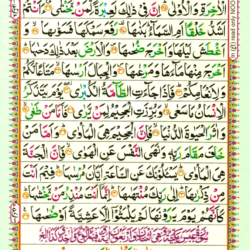 الْاٰخِرَةِ وَالْاُوْلٰى اِنَّ فِيْ ذٰلِكَ لَعِبْرَةً لِّمَنْ يَّخْشٰى ءَاَنْتُمْ
اَشَدُّ خَلْقًا اَمِ السَّمَآءُ بَنٰىهَا رَفَعَ سَمْكَهَا فَسَوّٰىهَا وَ
اَغْطَشَ لَيْلَهَا وَاَخْرَجَ ضُحٰىهَا وَالْاَرْضَ بَعْدَ ذٰلِكَ دَحٰىهَا
اَخْرَجَ مِنْهَا مَآءَهَا وَمَرْعٰىهَا وَالْجِبَالَ اَرْسٰىهَا مَتَاعًا لَّكُمْ
وَلِاَنْعَامِكُمْ فَاِذَا جَآءَتِ الطَّآمَّةُ الْكُبْرٰى يَوْمَ يَتَذَكَّرُ
الْاِنْسَانُ مَا سَعٰى وَبُرِّزَتِ الْجَحِيْمُ لِمَنْ يَّرٰى فَاَمَّا مَنْ طَغٰى
وَاٰثَرَ الْحَيٰوةَ الدُّنْيَا فَاِنَّ الْجَحِيْمَ هِيَ الْمَاْوٰى وَاَمَّا مَنْ
خَافَ مَقَامَ رَبِّهٖ وَنَهَى النَّفْسَ عَنِ الْهَوٰى فَاِنَّ الْجَنَّةَ
هِيَ الْمَاْوٰى يَسْـَٔلُوْنَكَ عَنِ السَّاعَةِ اَيَّانَ مُرْسٰىهَا فِيْمَ اَنْتَ
مِنْ ذِكْرٰىهَا اِلٰى رَبِّكَ مُنْتَهٰىهَا اِنَّمَآ اَنْتَ مُنْذِرُ مَنْ يَّخْشٰىهَا
كَاَنَّهُمْ يَوْمَ يَرَوْنَهَا لَمْ يَلْبَثُوْٓا اِلَّا عَشِيَّةً اَوْ ضُحٰىهَا